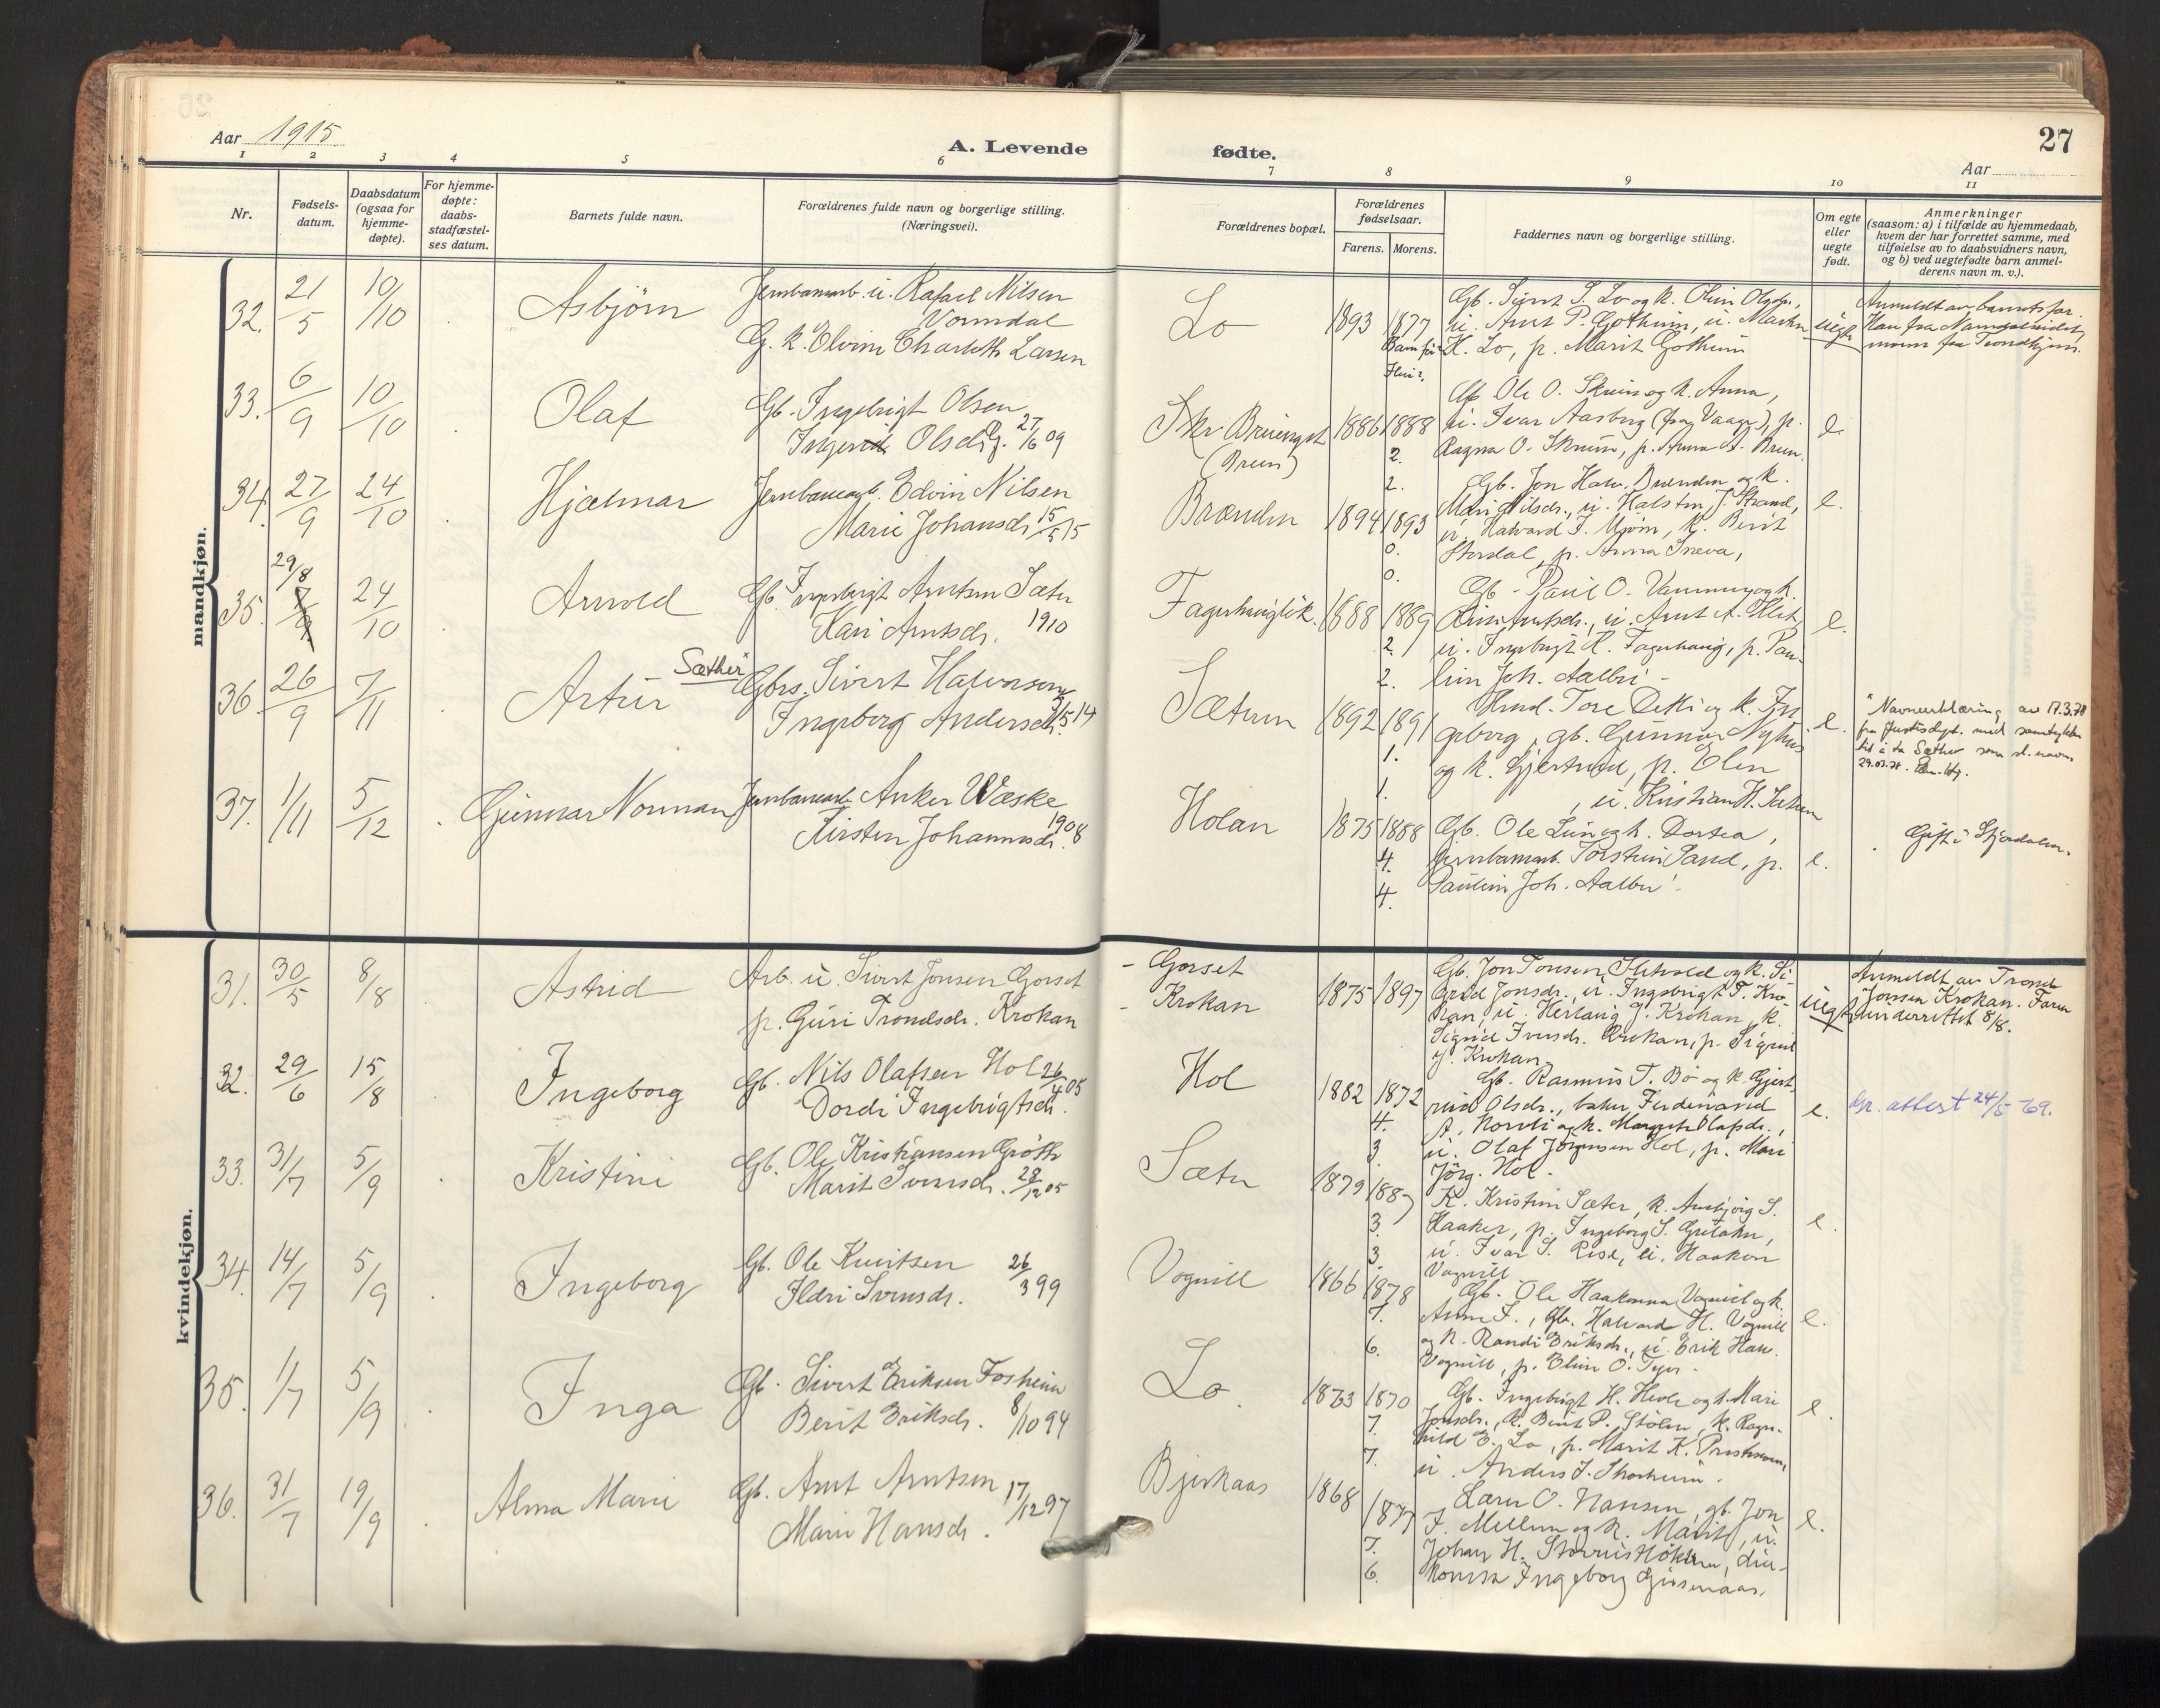 Aar 1915
A. Levende
fødte.
27
Aar
1 2 3 4 5 6 7 8 9 10 11
Nr.
Fødsels-
datum.
Daabsdatum
(ogsaa for
hjemme-
døpte).
For hjemme-
døpte:
daabs-
stadfæstel-
ses datum.
Barnets fulde navn.
Forældrenes fulde navn og borgerlige stilling.
(Næringsvei).
Forældrenes bopæl.
Forældrenes
fødselsaar.
Farens. Morens.
Faddernes navn og borgerlige stilling.
Om egte
eller
uegte
født.
Anmerkninger
(saasom: a) i tilfælde av hjemmedaab,
hvem der har forrettet samme, med
tilføielse av to daabsvidners navn,
og b) ved uegtefødte barn anmel-
derens navn m. v.).
mandkjøn.
32. 21/5 10/10 Asbjørn
Jernbanearb. u. Rafael Nilsen
Vormdal
G. k. Olvine Charloth Larsen
Lo 1893 1877
Gb. Sivert S. Lo og k. Olin Olsdr.,
u. Arnt P. Gotheim, u. Martin
K. Lo, p. Marit Gotheim
uegte
Anmeldt av barnets far.
Han fra Namdalseidet,
moren fra Trondhjem.
33. 6/9 10/10 Olaf
Gb. Ingebrigt Olsen
Olsdr. 27/6 09
(Brein) 1886 1888
2.
2.
Ole O. Skrein og k. Anna,
u. Ivar Aasberg (fra Vaage), p.
Ragna O. Skrein, p. Anna
e.
34. 27/9 24/10 Hjælmar
Jernbanearb. Edvin Nilsen
Marie Johansdr. 15/5 15
Brænden 1894 1893
0.
0.
Gb. Jon Halv. Brænden og k.
Mari Nilsdr., u. Halsten J. Strand,
u. Halvard J. Mjøen, k. Berit
Stordal, p. Anna Sneva,
e.
35. 29/8 24/10 Arnold
Gb. Ingebrigt Arntsen Sæter
Kari Arntsdr. 1910
1888 1889
2.
2.
Gb. Paul O.
Arntsdr., u. Arnt A.
u. Ingebrigt R. Fagerhaug, p. Pau-
line Joh. Aalbu
e.
36. 26/9 7/11 Artur Sæther"
Gbrs. Sivert Halvorsen
Ingeborg Andersdr. 3/5 14
Sætrum 1892 1891
1.
1.
Tore Detli og k. Ing
geborg, gb. Gunnar Nyhus
og k. Gjertrud, p. Elen
, u. Kristian H. Sætrum
e.
" Navneerklæring av 17.3.78
fra Justisdept. med samtykke
til å ta Sæther som sl.navn.
37. 1/11 5/12 Gunnar Norman
Jernbanearb. Anker Wæske
Kirsten Johannesdr. 1908
Holan 1875 1888
4.
4.
Gb. Ole Lien og k. Dortea,
Jernbanearb. Torstein Sand, p.
Paulin Joh. Aalbu.
e.
Gift i Stjørdalen.
kvindekjøn.
31. 30/5 8/8 Astrid
Arb. u. Sivert Jonsen Gorset
p. Guri Trondsdr. Krokan
- Gorset
- Krokan
1875 1897
Gb. Jon Jonsen Sletvold og k. Si-
grid Jonsdr., u. Ingebrigt T. Kro-
kan, u. Herlaug J. Krokan, k.
Sigrid Iversdr. Krokan, p. Sigrid
J. Krokan
uegte
Anmeldt av Trond
Jonsen Krokan. Faren
underrettet 8/8.
32. 29/6 15/8 Ingeborg
Gb. Nils Olafsen Hol 26/4 05
Dordi Ingebrigtsdr.
Hol 1882 1872
4.
3
Gb. Rasmus T. Bø og k. Gjert
rud Olsdr., baker Ferdinand
A. Norvli og k. Margrete Olafsdr.,
u. Olaf Jørgensen Hol, p. Mari
Jørg. Hol.
e.
attest 24/5 69.
33. 31/7 5/9 Kristine
Gb. Ole Kristiansen Grøtte
Marit Sivertsdr. 28/12 05
Sæter 1879 1887
3.
3.
K. Kristine Sæter, k. Ambjørg S.
Haaker, p. Ingeborg S.
u. Ivar S. Rise, u. Haakon
Vognill
e.
34. 14/7 5/9 Ingeborg
Gb. Ole Knutsen 26/3 99
Ildri Svensdr.
Vognill 1866 1878
7.
6.
Gb. Ole Haakonsen Vognild og k.
Anne I., Gb. Halvard H. Vognill
og k. Randi Eriksdr., u. Erik Haav.
Vognill, p. Eline O.
e.
35. 1/7 5/9 Inga
Gb. Sivert Eriksen Fosheim
Berit Eriksdr. 8/10 94
Lo 1863 1870
7.
7.
Gb. Ingebrigt H. Hevle og k. Mari
Jonsdr., k. Berit P. Stølen, k. Ragn-
hild E. Lo, p. Marit K.
u. Anders J.
e.
36. 31/7 19/9 Alma Marie
Gb. Arnt Arntsen 17/12 97
Marie Hansdr.
Bjerkaas 1868 1877
7.
6.
Lærer O. Hansen, gb. Jon
J. Mellem og k. Marit, u.
Johan H. diа-
konisse Ingeborg Gisnaas.
e.